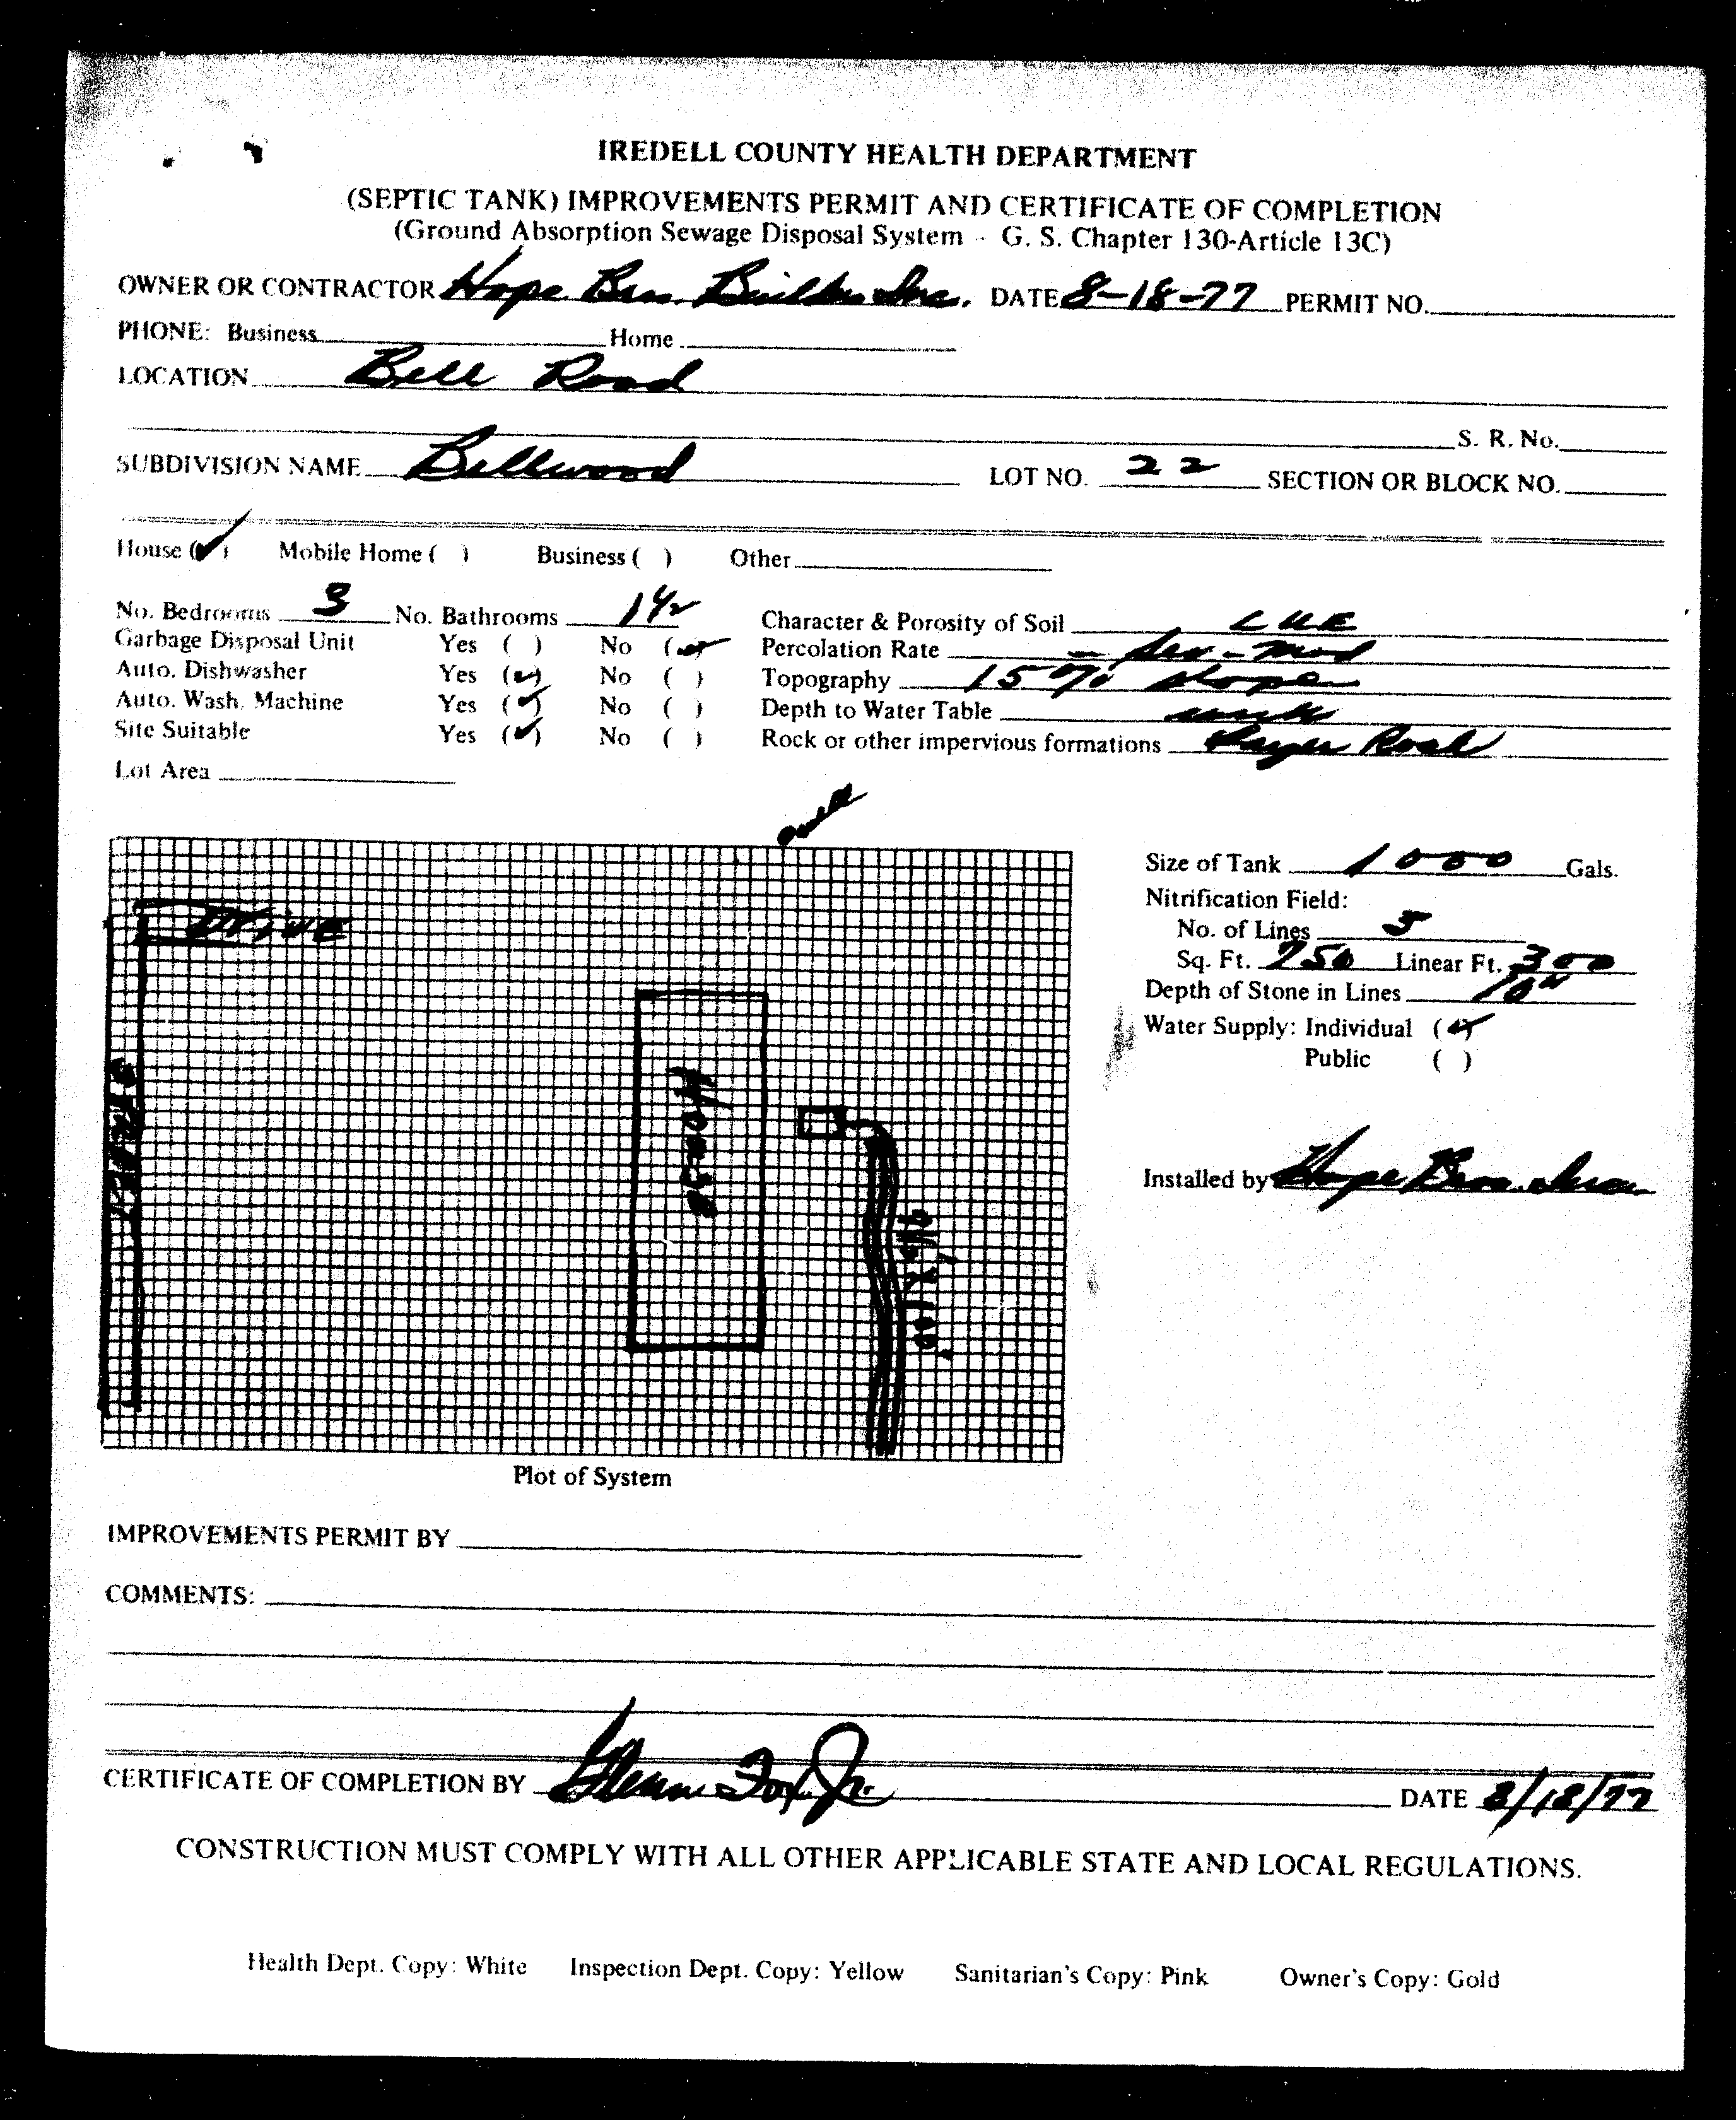 IREDELL COUNTY HEALTH DEPARTMENT
(SEPTIC TANK) IMPROVEMENTS PERMIT AND CERTIFICATE OF COMPLETION
(Ground Absorption Sewage Disposal System - G. S. Chapter 130-Article 13C)
OWNER OR CONTRACTOR Hope Bros. Builders Inc. DATE 8-18-77 PERMIT NO.
PHONE: Business Home
LOCATION Bell Road
S. R. No.
SUBDIVISION NAME Bellwood LOT NO. 22 SECTION OR BLOCK NO.
House (✓) Mobile Home ( ) Business ( ) Other
No. Bedrooms 3 No. Bathrooms 1 1/2 Character & Porosity of Soil
Garbage Disposal Unit Yes ( ) No (✓) Percolation Rate
Auto. Dishwasher Yes (✓) No ( ) Topography 15% slope
Auto. Wash. Machine Yes (✓) No ( ) Depth to Water Table
Site Suitable Yes (✓) No ( ) Rock or other impervious formations
Lot Area
Size of Tank 1000 Gals.
Nitrification Field:
Drive
No. of Lines
Sq. Ft. 750 Linear Ft. 300
Depth of Stone in Lines 10"
Water Supply: Individual (✓)
Public ( )
STREET
House
Installed by Hope Bros. Inc.
Plot of System
IMPROVEMENTS PERMIT BY
COMMENTS:
CERTIFICATE OF COMPLETION BY Glenn Fox Jr. DATE 8/18/77
CONSTRUCTION MUST COMPLY WITH ALL OTHER APPLICABLE STATE AND LOCAL REGULATIONS.
Health Dept. Copy: White Inspection Dept. Copy: Yellow Sanitarian's Copy: Pink Owner's Copy: Gold